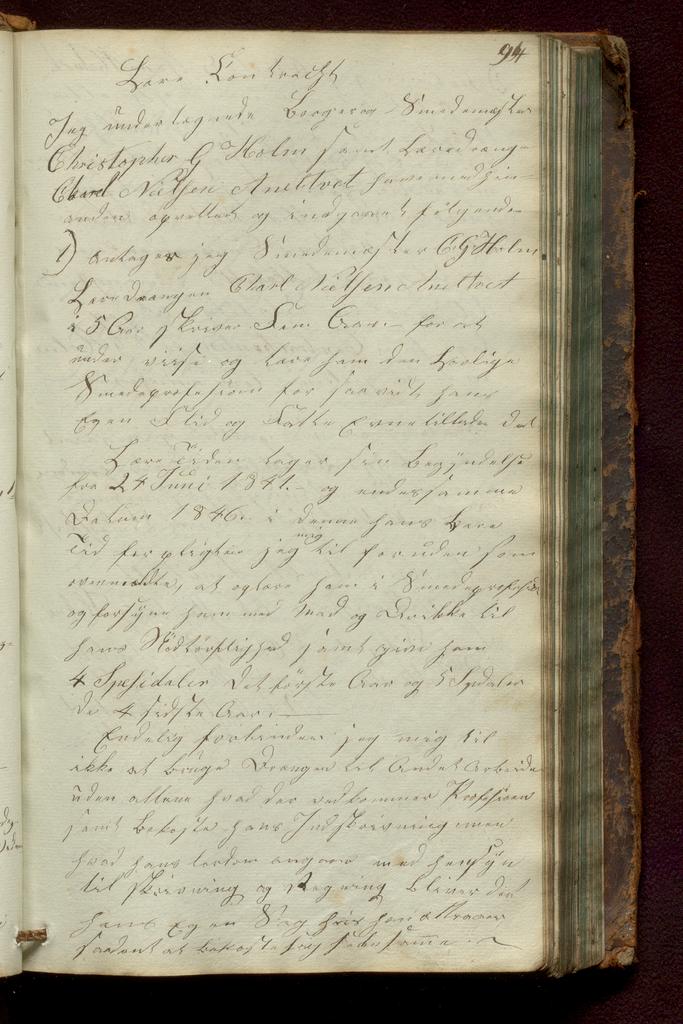 94
Lære Contracht
Jeg undertegnede Borger og Smedemester
Christopher G Holm samt Læredreng
Charl Nielsen Anettvet have med hin-
anden oprettet og indgaaet følgende
1) Antager jeg Smedemester C. G. Holm
Læredrengen Charl Nielsen Anettvet
i 5 Aar skriver Fem Aar – for at
under viise og lære ham den lovlige
Smedeprofesion for saavidt hans
Egen Flid og Fatte Evne tillader det
Lære Tiden tager sin Begyndelse
fra 24 Juni 1841. – og endes samme
Datum 1846. i denne hans Lære
Tid forpligter jeg mig til foruden som
ovenmeldte, at oplære ham i Smedeprofesion
og forsyne ham med Mad og Drikke til
hans Nødtørftighed samt give ham
4 Spesidaler det første Aar og 5 Spdaler
de 4 sidste Aar. –
Endelig forbinder jeg mig til
ikke at bruge Drengen til Andet Arbeide
uden allene hvad der vedkommer Profesionen
samt bekoste hans Indskrivning men
hvad hans lærdom angaar med hensyn
til skrivning og Regning bliver det
hans Egen Sag hvis han attraaer
saadant at bekoste sig selv samme. –